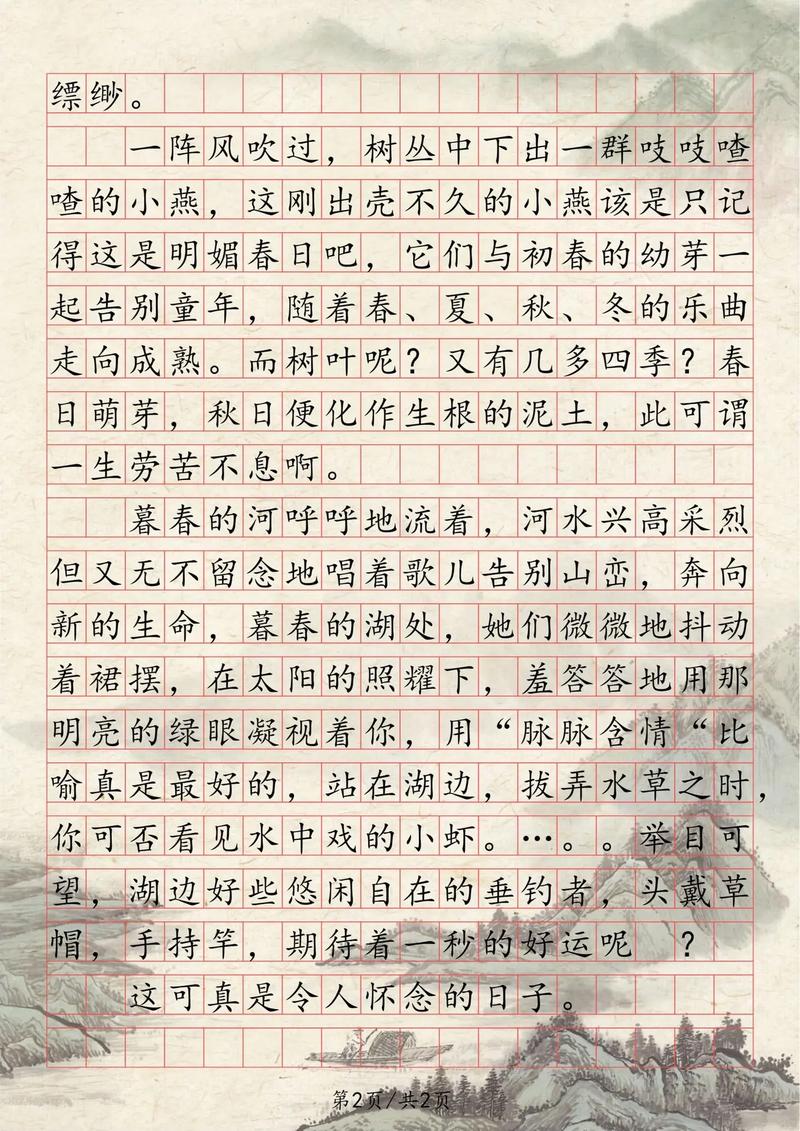 缥缈。
一阵风吹过，树丛中下出一群吱吱喳
喳的小燕，这刚出壳不久的小燕该是只记
得这是明媚春日吧，它们与初春的幼芽一
起告别童年，随着春、夏、秋、冬的乐曲
走向成熟。而树叶呢？又有几多四季？春
日萌芽，秋日便化作生根的泥土，此可谓
一生劳苦不息啊。
暮春的河呼呼地流着，河水兴高采烈
但又无不留念地唱着歌儿告别山峦，奔向
新的生命，暮春的湖处，她们微微地抖动
着裙摆，在太阳的照耀下，羞答答地用那
明亮的绿眼凝视着你，用“脉脉含情“比
喻真是最好的，站在湖边，拔弄水草之时，
你可否看见水中戏的小虾。…。。举目可
望，湖边好些悠闲自在的垂钓者，头戴草
帽，手持竿，期待着一秒的好运呢 ？
这可真是令人怀念的日子。
第2页/共2页